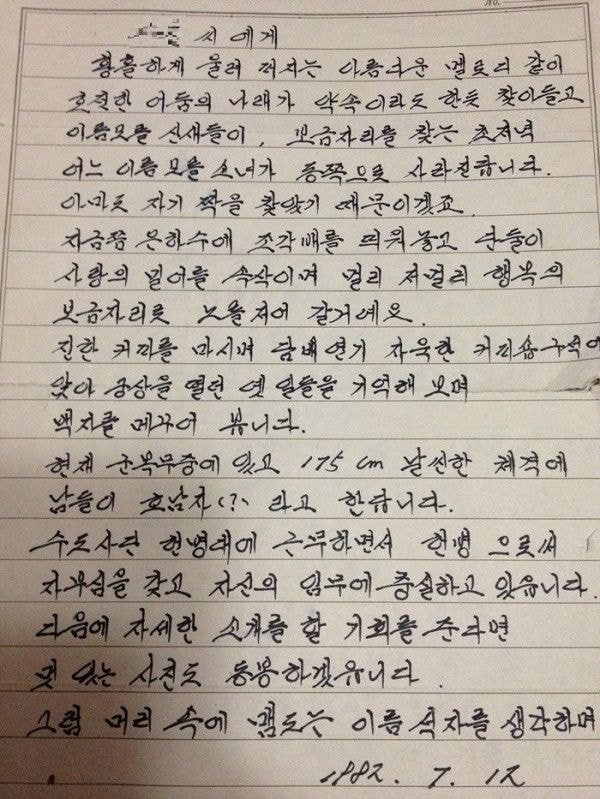 씨에게
황홀하게 울려 퍼지는 아름다운 멜로디 같이
호젓한 어둠의 나래가 약속이라도 한듯 찾아들고
이름모를 산새들이, 보금자리를 찾는 초저녁
어느 이름모를 소녀가 동쪽으로 사라진답니다.
아마도 자기 짝을 찾았기 때문이겠죠.
지금쯤 은하수에 조각배를 띄워놓고 단둘이
사랑의 밀어를 속삭이며 멀리 저멀리 행복의
보금자리로 노를저어 갈거예요.
진한 커피를 마시며 담배연기 자욱한 커피숍구석에
앉아 궁상을 떨던 옛일들을 기억해 보며
백지를 메꾸어 봅니다.
현재 군복무중에 있고 175 cm 날씬한 체격에
남들이 호남자(?) 라고 한답니다.
수도사단 헌병대에 근무하면서 헌병 으로써
자부심을 갖고 자신의 임무에 충실하고 있읍니다.
다음에 자세한 소개를 할 기회를 준다면
멋있는 사진도 동봉하겠읍니다.
그럼 머리속에 맴도는 이름석자를 생각하며
1982. 7. 12
NO.